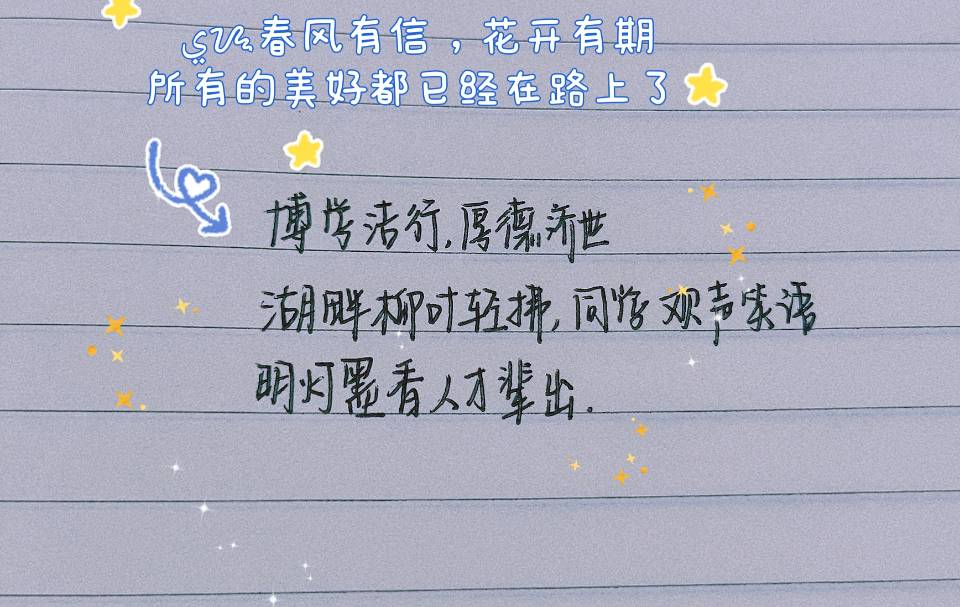 春风有信，花开有期
所有的美好都已经在路上了
博学洁行,厚德济世
湖畔柳叶轻拂,同学欢声笑语
明灯墨香人才辈出.